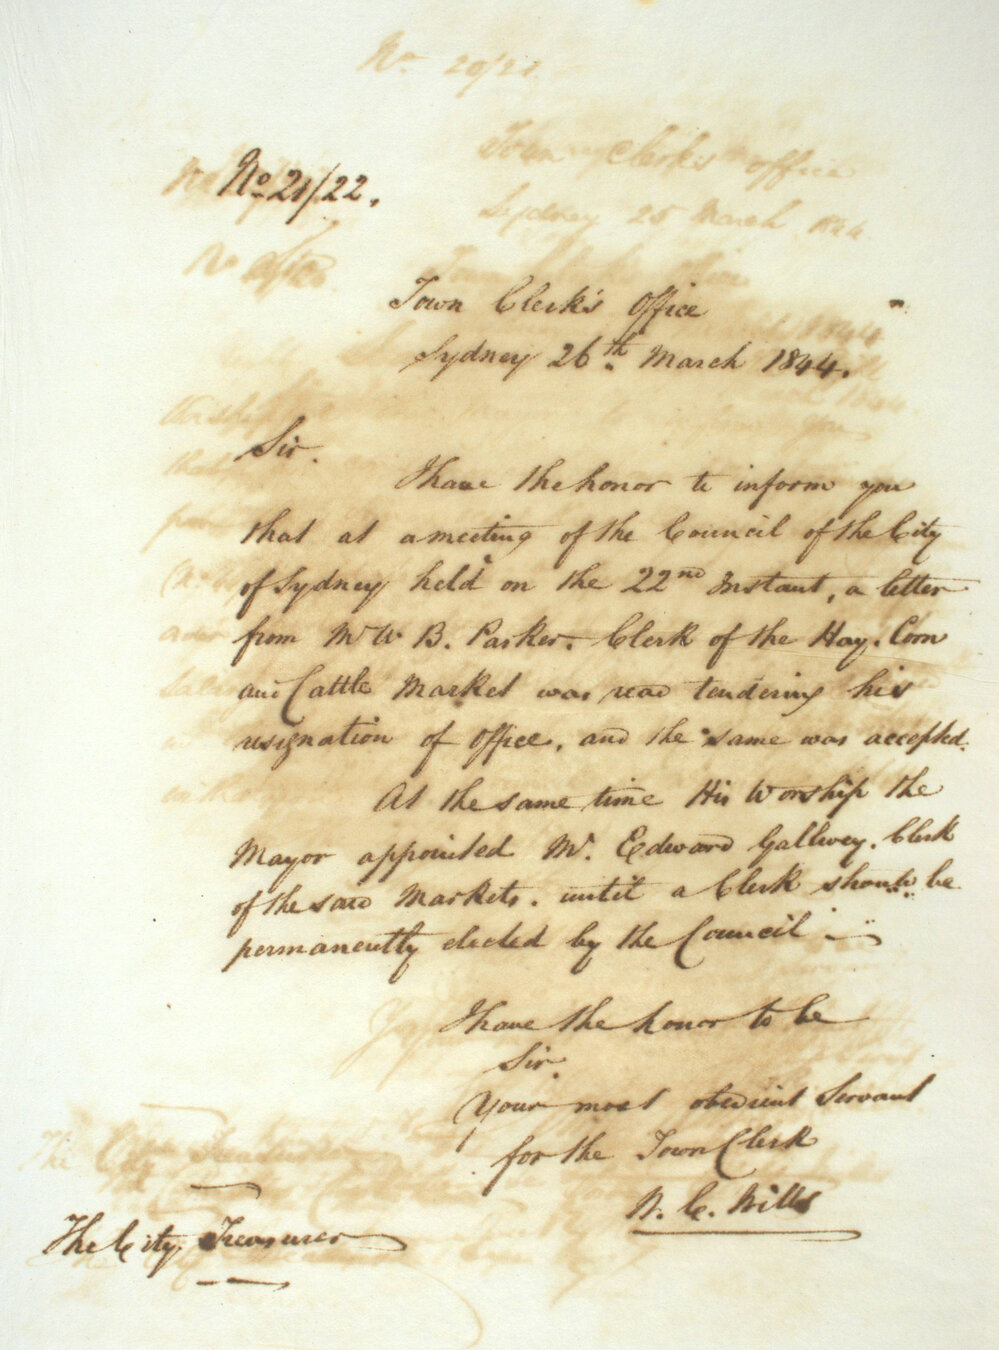 No. 20/21.
Town Clerk's Office
Sydney 25 March 1844
No 21/22.
Town Clerk's Office
Sydney 26th March 1844.
Sir.
I have the honor to inform you
that at a meeting of the Council of the City
of Sydney held on the 22nd Instant, a letter
from Mr W B. Parker. Clerk of the Hay. Corn
and Cattle Market was read tendering his
resignation of office, and the same was accepted.
At the same time His Worship the
Mayor appointed Mr. Edward Gallwey. Clerk
of the said Markets. until a Clerk should be
permanently elected by the Council
I have the honor to be
Sir.
Your most obedient Servant
for the Town Clerk
W. C. Wills
The City Treasurer